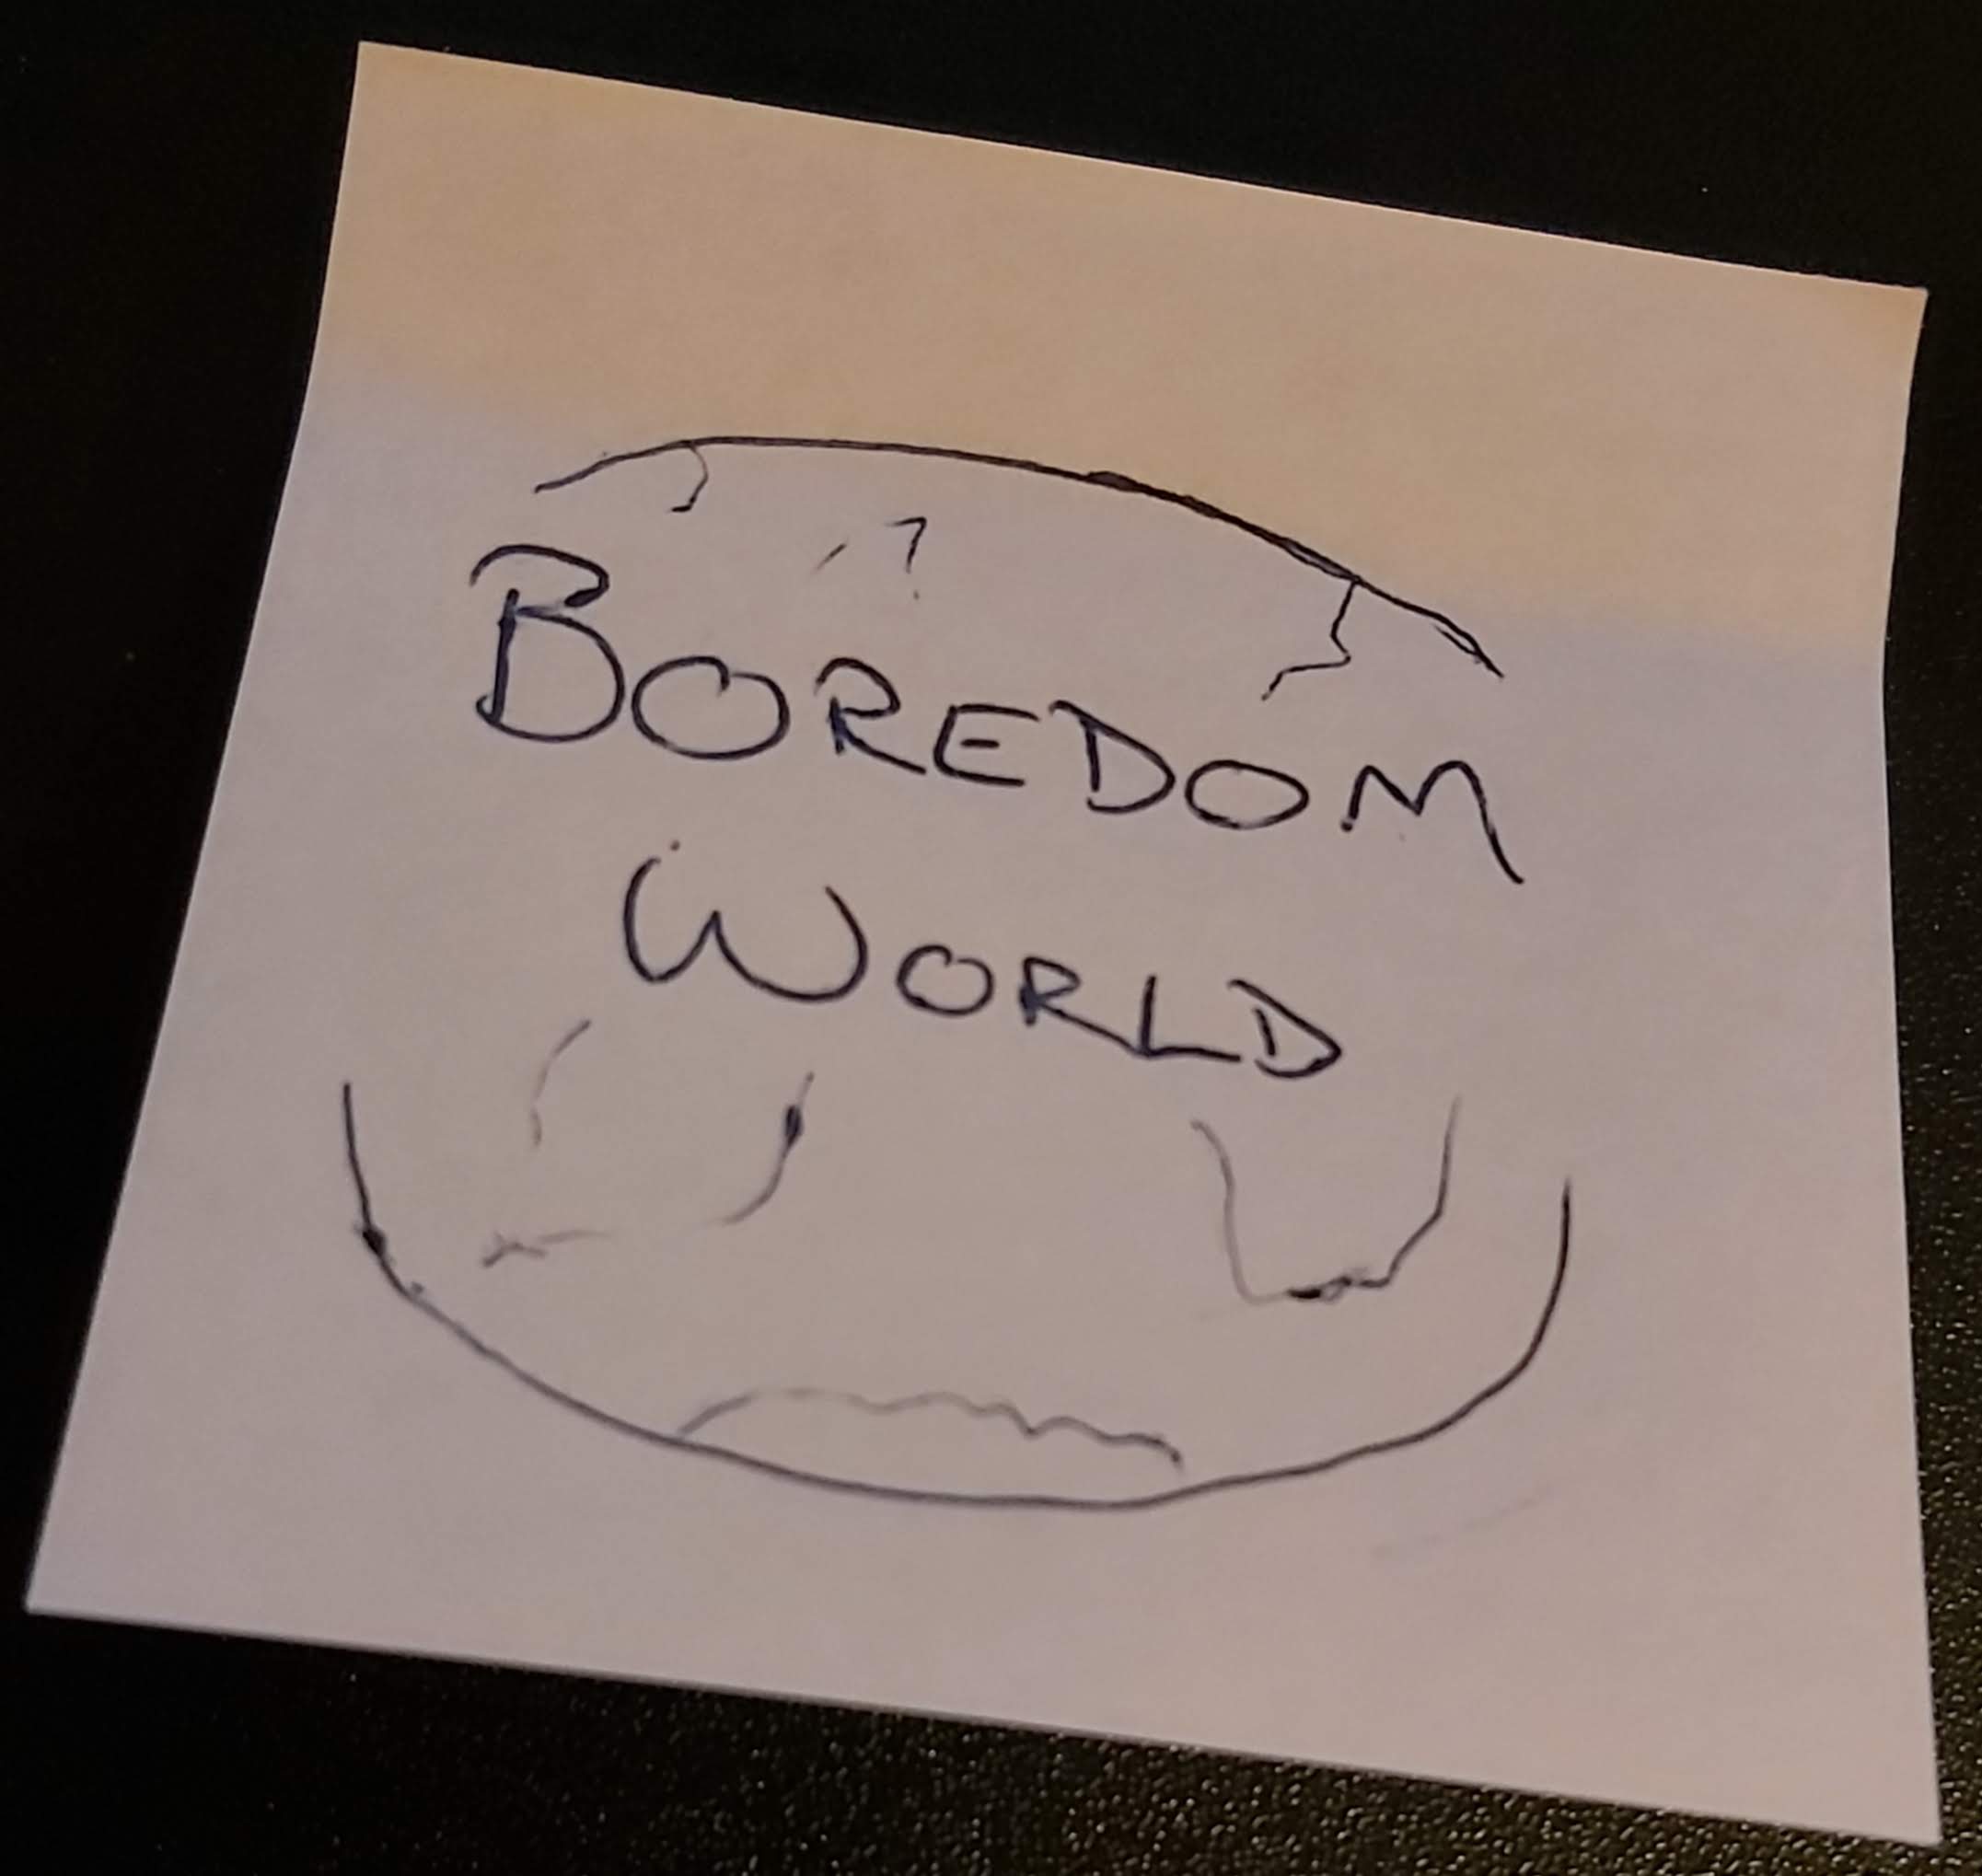 BOREDOM
WORLD